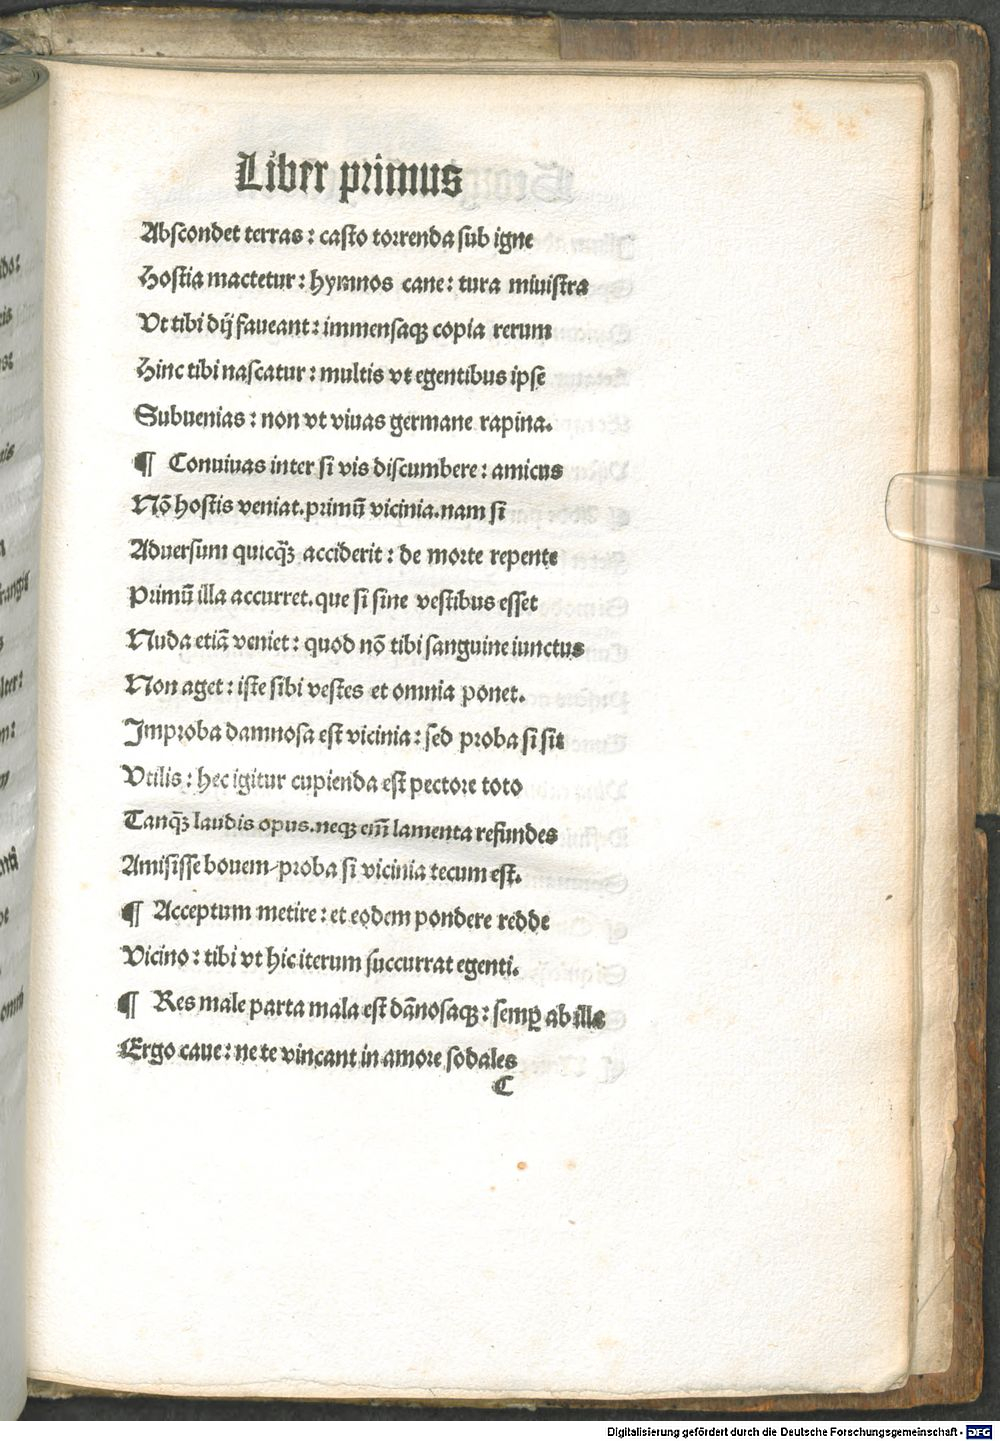 Liber primus
Abscondet terras : casto torrenda sub igne
Hostia mactetur : hymnos cane : tura miuistra
Vt tibi dij faueant : immensaqꝫ copia rerum
Hinc tibi nascatur : multis vt egentibus ipse
Subuenias : non vt viuas germane rapina.
¶ Conuiuas inter si vis discumbere : amicus
Nō hostis veniat. primū vicinia. nam si
Aduersum quicq̄ꝫ acciderit : de morte repente
Primū illa accurret. que si sine vestibus esset
Nuda etiā veniet : quod nō tibi sanguine iunctus
Non aget : iste sibi vestes et omnia ponet.
Improba damnosa est vicinia : sed proba si sit
Vtilis : hec igitur cupienda est pectore toto
Tanq̄ꝫ laudis opus. neqꝫ em̄ lamenta refundes
Amisisse bouem / proba si vicinia tecum est.
¶ Acceptum metire : et eodem pondere redde
Vicino : tibi vt hic iterum succurrat egenti.
¶ Res male parta mala est dānosaqꝫ : semꝑ ab illa
Ergo caue : ne te vincant in amore sodales
C
Digitalisierung gefördert durch die Deutsche Forschungsgemeinschaft - DFG